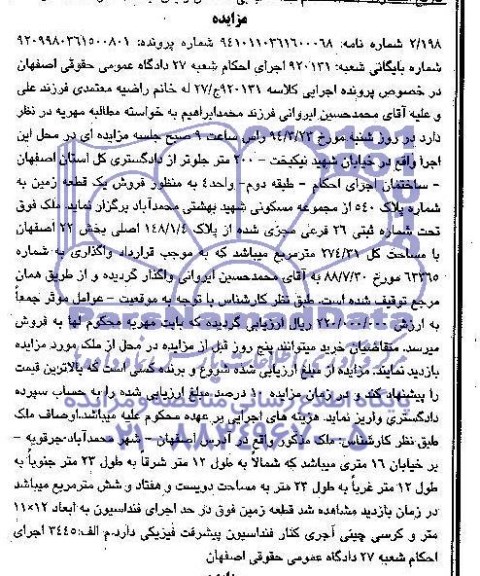 مزایده
۲/۱۹۸ شماره نامه: ۹۴۱۰۱۱۰۳۶۱۶۰۰۰۶۸ شماره پرونده: ۹۲۰۹۹۸۰۳۶۱۵۰۰۸۰۱
شماره بایگانی شعبه: ۹۲۰۱۳۱ اجرای احکام شعبه ۲۷ دادگاه عمومی حقوقی اصفهان
در خصوص پرونده اجرایی کلاسه ۹۲۰۱۳۱ج/۲۷ له خانم راضیه معتمدی فرزند علی
و علیه آقای محمدحسین ایروانی فرزند محمدابراهیم به خواسته مطالبه مهریه در نظر
دارد در روز شنبه مورخ ۹۴/۳/۲۳ راس ساعت ۹ صبح جلسه مزایده ای در محل این
اجرا واقع در خیابان شهید نیکبخت – ۲۰۰ متر جلوتر از دادگستری کل استان اصفهان
– ساختمان اجرای احکام – طبقه دوم – واحد۴ به منظور فروش یک قطعه زمین به
شماره پلاک ۵۴۰ از مجموعه مسکونی شهید بهشتی محمدآباد برگزار نماید. ملک فوق
تحت شماره ثبتی ۲۶ فرعی مجزی شده از پلاک ۱۴۸/۱/۴ اصلی بخش ۲۲ اصفهان
با مساحت کل ۲۷۴/۳۱ مترمربع میباشد که به موجب قرارداد واگذاری به شماره
۶۳۳۶۵ مورخ ۸۸/۷/۳۰ به آقای محمدحسین ایروانی واگذار گردیده و از طریق همان
مرجع توقیف شده است. طبق نظر کارشناس با توجه به موقعیت – عوامل موثر جمعاً
به ارزش ۲۲۰/۰۰۰/۰۰۰ ریال ارزیابی گردیده که بابت مهریه محکوم لها به فروش
میرسد. متقاضیان خرید میتوانند پنج روز قبل از مزایده در محل از ملک مورد مزایده
بازدید نمایند. مزایده از مبلغ ارزیابی شده شروع و برنده کسی است که بالاترین قیمت
را پیشنهاد کند و در زمان مزایده ۱۰ درصد مبلغ ارزیابی شده را به حساب سپرده
دادگستری واریز نماید. هزینه های اجرایی بر عهده محکوم علیه میباشد.اوصاف ملک
طبق نظر کارشناس: ملک مذکور واقع در آدرس اصفهان – شهر محمدآباد-جرقویه –
بر خیابان ۱۶ متری میباشد که شمالا به طول ۱۲ متر شرقا به طول ۲۳ متر جنوباً به
طول ۱۲ متر غرباً به طول ۲۳ متر به مساحت دویست و هفتاد و شش مترمربع میباشد
در زمان بازدید مشاهده شد قطعه زمین فوق در حد اجرای فنداسیون به ابعاد ۱۲×۱۱
متر و کرسی چینی آجری کنار فنداسیون پیشرفت فیزیکی دارد.م الف:۳۴۴۵ اجرای
احکام شعبه ۲۷ دادگاه عمومی حقوقی اصفهان
ParsNamadData
۰۲۱-۸۸۳۴۹۶۷۰-۵